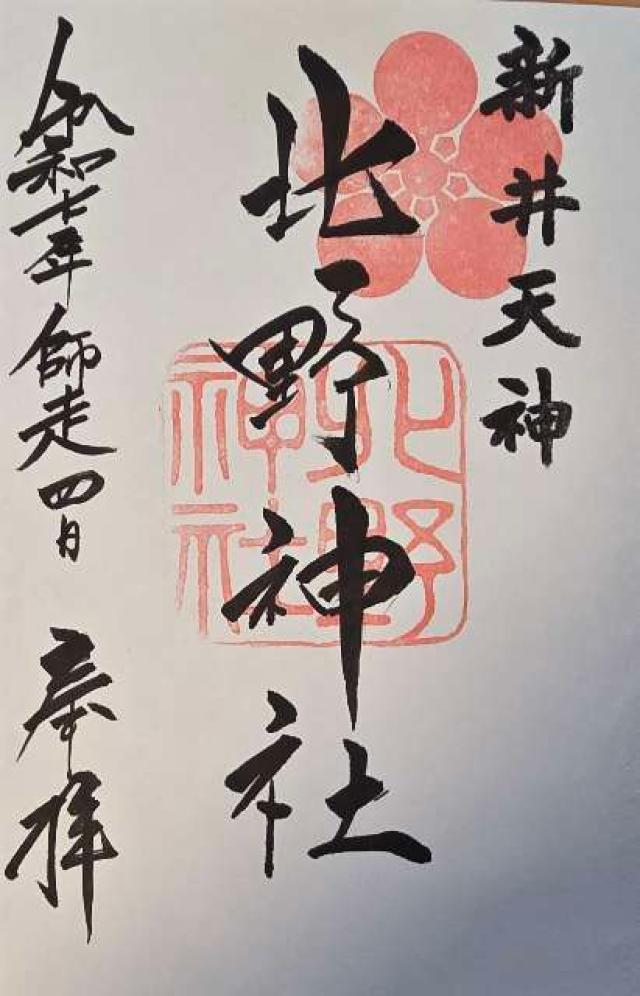 新井天神
北野神社
令和七年師走四日
奉拝
北野神社